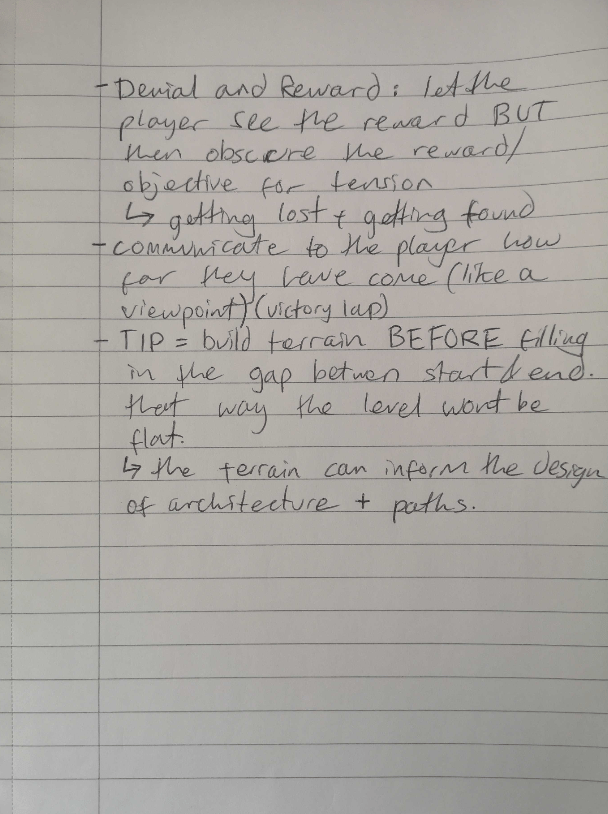 - Denial and Reward: let the
player see the reward BUT
then obscure the reward/
objective for tension
↳ getting lost + getting found
- communicate to the player how
far they have come (like a
viewpoint) (victory lap)
- TIP = build terrain BEFORE filling
in the gap betwen start & end.
that way the level wont be
flat.
↳ the terrain can inform the design
of architecture + paths.